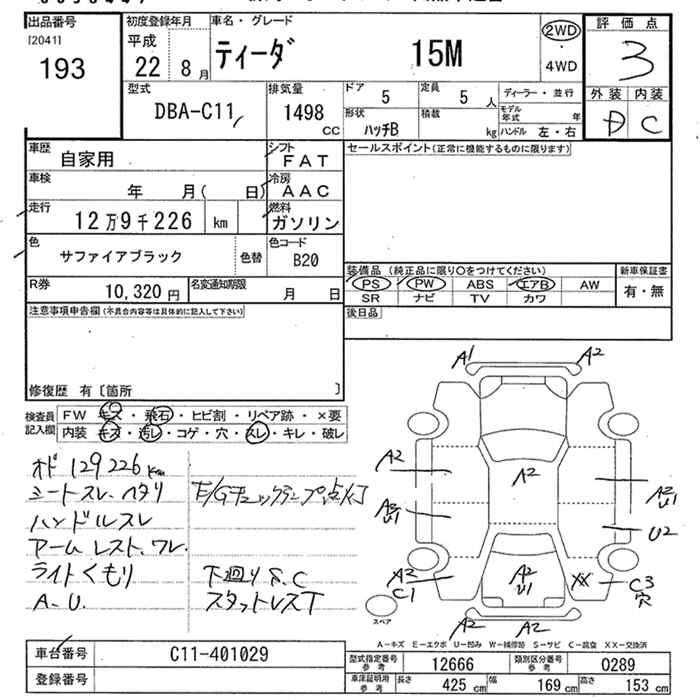 出品番号
[2041]
193
初度登録年月
平成
22 8月
車名・グレード
ティーダ 15M
2WD
・
4WD
評価点
3
外装 内装
D C
型式
DBA-C11
排気量
1498
CC
ドア
5
定員
5 人
ディーラー・並行
形状
ハッチB
積載
kg
モデル年式 年
ハンドル 左・右
車歴
自家用
シフト
FAT
車検
年 月( 日)
冷房
AAC
走行
12万9千226 km
燃料
ガソリン
色
サファイアブラック
色替
色コード
B20
R券
10,320円
名変通知期限
月 日
セールスポイント(正常に機能するものに限ります)
装備品 (純正品に限り○をつけてください)
新車保証書
PS PW ABS エアB AW
有・無
SR ナビ TV カワ
後日品
注意事項申告欄(不具合内容等は具体的に記入して下さい)
修復歴 有〔箇所 〕
検査員
記入欄
FW キズ・飛石・ヒビ割・リペア跡・×要
内装 キズ・汚レ・コゲ・穴・スレ・キレ・破レ
オド 129226km
シートスレ、ヘタリ
E/Gチェックランプ点灯
ハンドルスレ
アームレスト、ワレ
ライトくもり
下廻りS.C
A-U.
スタットレスT
A1 A2
A2
A2
A2
U1
A2
U1
U2
A2
C1
A2
U1
XX
C3
穴
A2 A2
スペア
A-キズ E-エクボ U-凹み W-補修跡 S-サビ C-腐食 XX-交換済
車台番号
C11-401029
登録番号
型式指定番号
参考
12666
類別区分番号
参考
0289
車庫証明用
参考
長さ 425 cm 幅 169 cm 高さ 153 cm